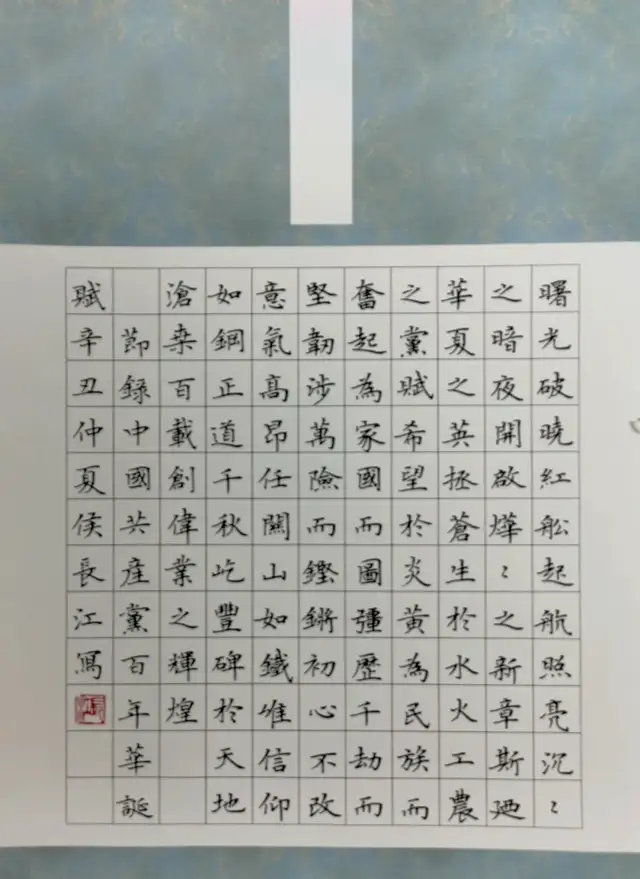 曙光破曉紅舩起航照亮沉〻
之暗夜開啟燁〻之新章斯廼
華夏之英拯蒼生於水火工農
之黨賦希望於炎黃為民族而
奮起為家國而圖彊歷千劫而
堅韌涉萬險而鏗鏘初心不改
意氣髙昂任關山如鐵唯信仰
如鋼正道千秋屹豐碑於天地
滄桒百載創偉業之輝煌
節録中國共産黨百年華誕
賦辛丑仲夏侯長江寫